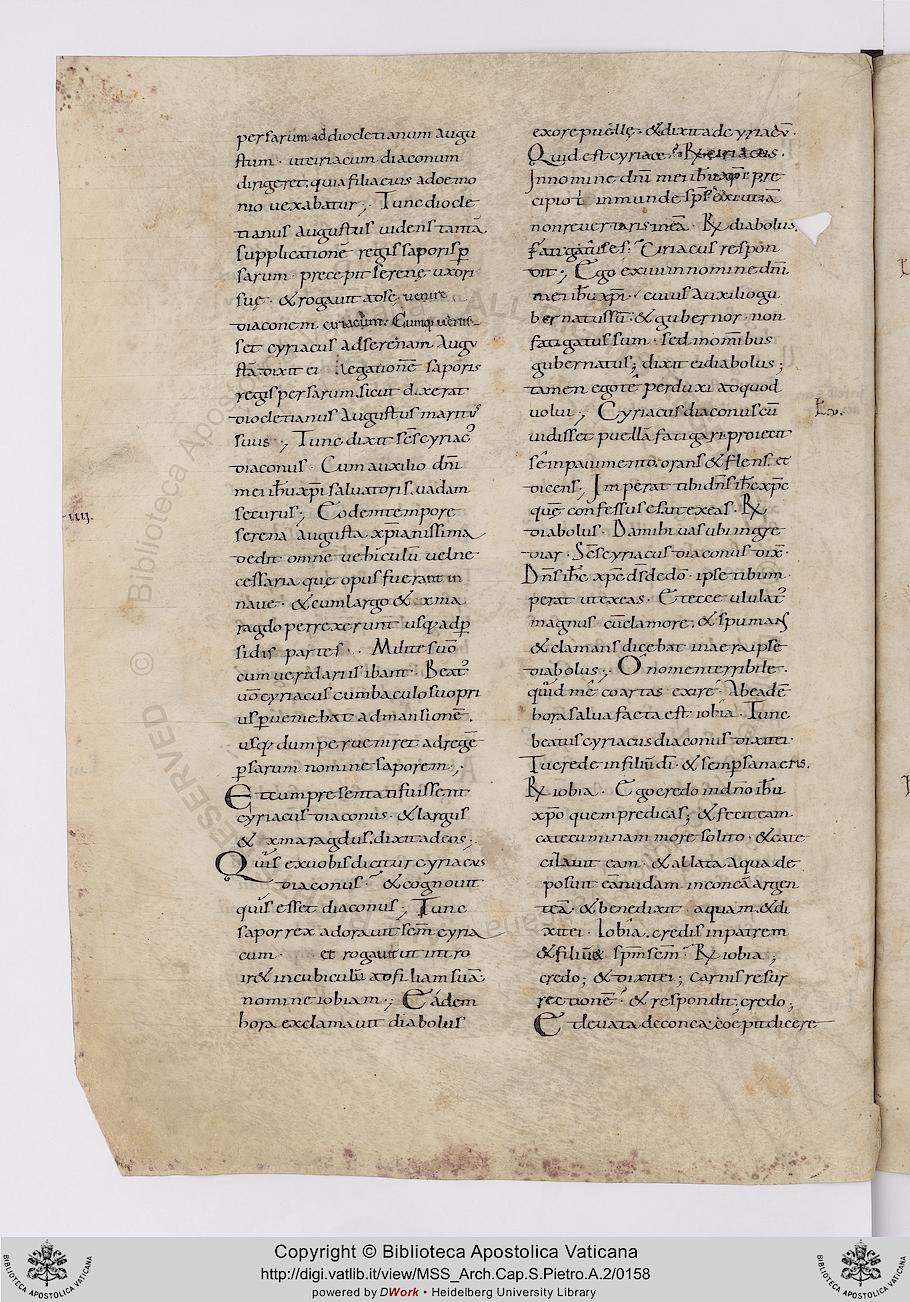 persarum ad diocletianum augu
stum · ut ciriacum diaconum
dirigeret, quia filia eius a demo
nio uexabatur ;· Tunc diocle
tianus augustus uidens tantā
supplicationē regis saporis ꝑ
sarum · precepit serenę uxori
suę · & rogauit a se uenire
diaconem cyriacum · Cumq; uenis
set cyriacus ad serenam augu
stā dixit ei legationē saporis
regis persarum, sicut dixerat
diocletianus augustus maritus
suus ·, Tunc dixit scs cyriac'
diaconus · Cum auxilio dn̄i
mei ihū xp̄i saluatoris, uadam
securus ; Eodem tempore
serena augusta xp̄ianissima
dedit omne uehiculū uel ne
cessaria que opus fuerant in
naue · & cum largo & xma
ragdo perrexerunt usq; ad ꝑ
sidis partes ·. Milites uō
cum ueridariis ibant · Beat'
uō cyriacus cum baculo suo pri
us ꝑueniebat ad mansionē,
usq; dum perueniret ad regē
ꝑsarum nomine saporem ·,
Et cum presentati fuissent
cyriacus diaconus · & largus
& xmaragdus, dixit ad eos ;
Quis ex uobis dicitur cyriacus
diaconus · & cognouit
quis esset diaconus ; Tunc
sapor rex adorauit scm̄ cyria
cum · et rogauit ut intro
iret in cubiculū ad filiam suā
nomine iobiam ·; Eadem
hora exclamauit diabolus
ex ore puellę · & dixit ad cyriacū ·
Quid est cyriace · Rx ciriacus ·
In nomine dn̄i mei ihū xp̄i pre
cipio t̄ inmunde sps
non reuertaris in eā · Rx diabolus,
fatigatus es ; Ciriacus respon
dit ; Ego exiui in nomine dn̄i
mei ihū xp̄i · cuius auxilio gu
bernatus sū · & gubernor · non
fatigatus sum · sed in omībus
gubernatus ; dixit ei diabolus ;
tamen ego te perduxi ad quod
uolui ; Cyriacus diaconus cū
uidisset puellā fatigari proiecit
se in pauimento, orans & flens, et
dicens ; Imperat tibi dn̄s ihē xp̄e
quē confessus es ut exeas · Rx
diabolus · Da mihi uas ubi ingre
diar · Scs cyriacus diaconus dix̄ ·
Dn̄s ihē xp̄e ds̄ de dō · ipse tibi im
perat ut exeas · Et ecce ululat'
magnus cū clamore, & spumans
& clamans dicebat in aera ipse
diabolus ;. O nomen terribile ·
quid me coartas exire · Ab eadē
hora salua facta est iobia · Tunc
beatus cyriacus diaconus dixit ei ·
Tu crede in filiū dī · & semp sana eris,
Rx iobia · Ego credo in dn̄o ihū
xp̄o quem predicas ; & fecit eam
catecuminam more solito · & cate
cilauit eam · & allata aqua de
posuit eā nudam in concā argen
teā & benedixit aquam, & di
xit ei · Iobia, credis in patrem
& filiū & spm̄ scm̄ · Rx iobia ;
credo ; & dixit ei ; carnis resur
rectionē · & respondit, credo ;
Et leuata de conca, coepit dicere
iiii.
Lu.
Copyright © Biblioteca Apostolica Vaticana
http://digi.vatlib.it/view/MSS_Arch.Cap.S.Pietro.A.2/0158
powered by DWork • Heidelberg University Library